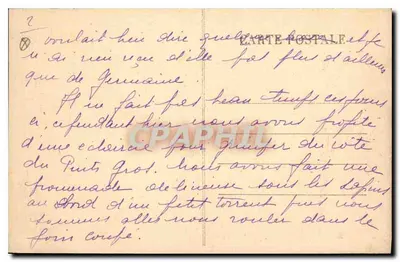 2
voulait bien dire quelque
CARTE POSTALE
et je
n'ai rien reçu d'elle pas plus d'ailleurs
que de Germaine.
Il ne fait pas beau temps ces jours
ci, cependant hier nous avons profité
d'une eclaircie pour manger du côté
du Puits Gros. Nous avons fait une
promenade delicieuse sous les sapins
au bord d'un petit torrent puis nous
sommes alles nous rouler dans le
foin coupé.
CPAPHIL